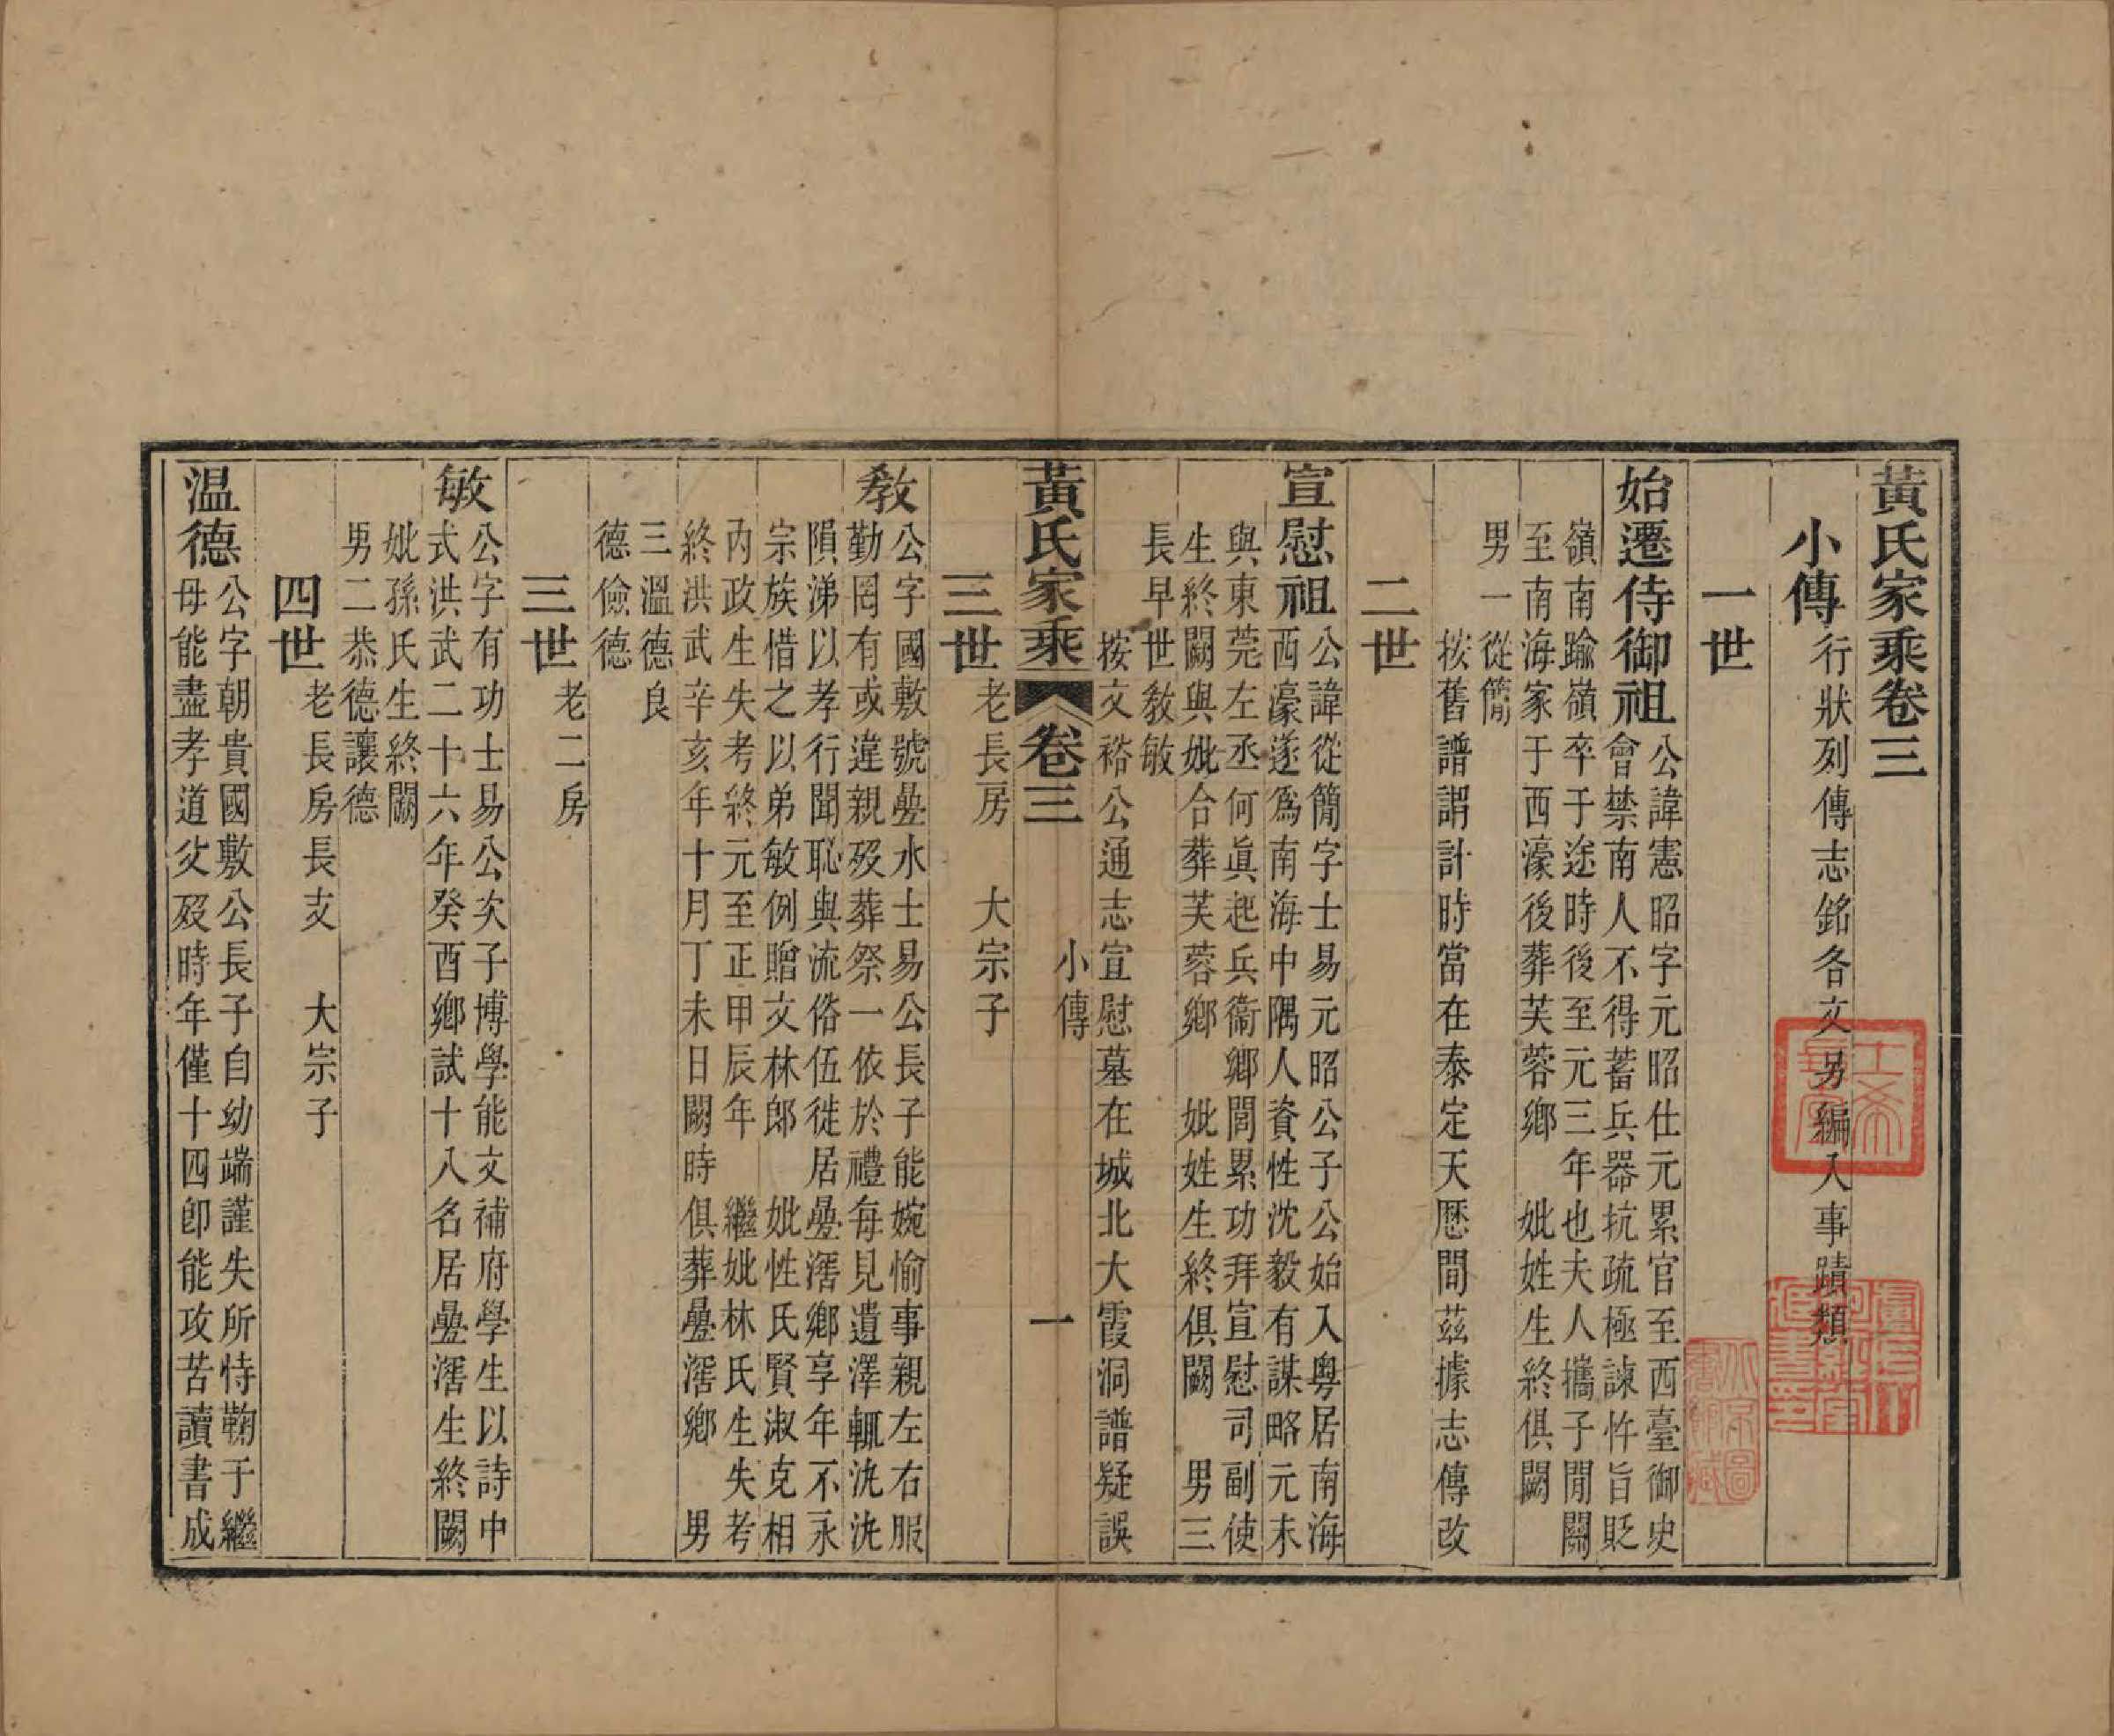 黃氏家乘卷三
小傳
行狀列傳志銘各文另編入事蹟類
一世
始遷侍御祖
公諱憲昭字元昭仕元累官至西臺御史
會禁南人不得蓄兵器抗疏極諫忤旨貶
嶺南踰嶺卒于途時後至元三年也夫人攜子閒關
至南海家于西濠後葬芙蓉鄉　妣姓生終俱闕
男一從簡
按舊譜謂計時當在泰定天歷間茲據志傳改
二世
宣慰祖
公諱從簡字士易元昭公子公始入粵居南海
西濠遂為南海中隅人資性沈毅有謀略元末
與東莞左丞何眞起兵衞鄉閭累功拜宣慰司副使
生終闕與妣合葬芙蓉鄉　妣姓生終俱闕　男三
長早世敎敏
按文裕公通志宣慰墓在城北大霞洞譜疑誤
黃氏家乘　卷三　小傳　一
三世
老長房　大宗子
敎
公字國敷號壘水士易公長子能婉愉事親左右服
勤罔有或違親歿葬祭一依於禮每見遺澤輒洸洸
隕涕以孝行聞恥與流俗伍徙居壘滘鄉享年不永
宗族惜之以弟敏例贈文林郎　妣性氏賢淑克相
內政生失考終元至正甲辰年　繼妣林氏生失考
終洪武辛亥年十月丁未日闕時俱葬壘滘鄉　男
三溫德良
德儉德
三世
老二房
敏
公字有功士易公次子博學能文補府學生以詩中
式洪武二十六年癸酉鄉試十八名居壘滘生終闕
妣孫氏生終闕
男二恭德讓德
四世
老長房長支　大宗子
溫德
公字朝貴國敷公長子自幼端謹失所恃鞠于繼
母能盡孝道父歿時年僅十四卽能攻苦讀書成